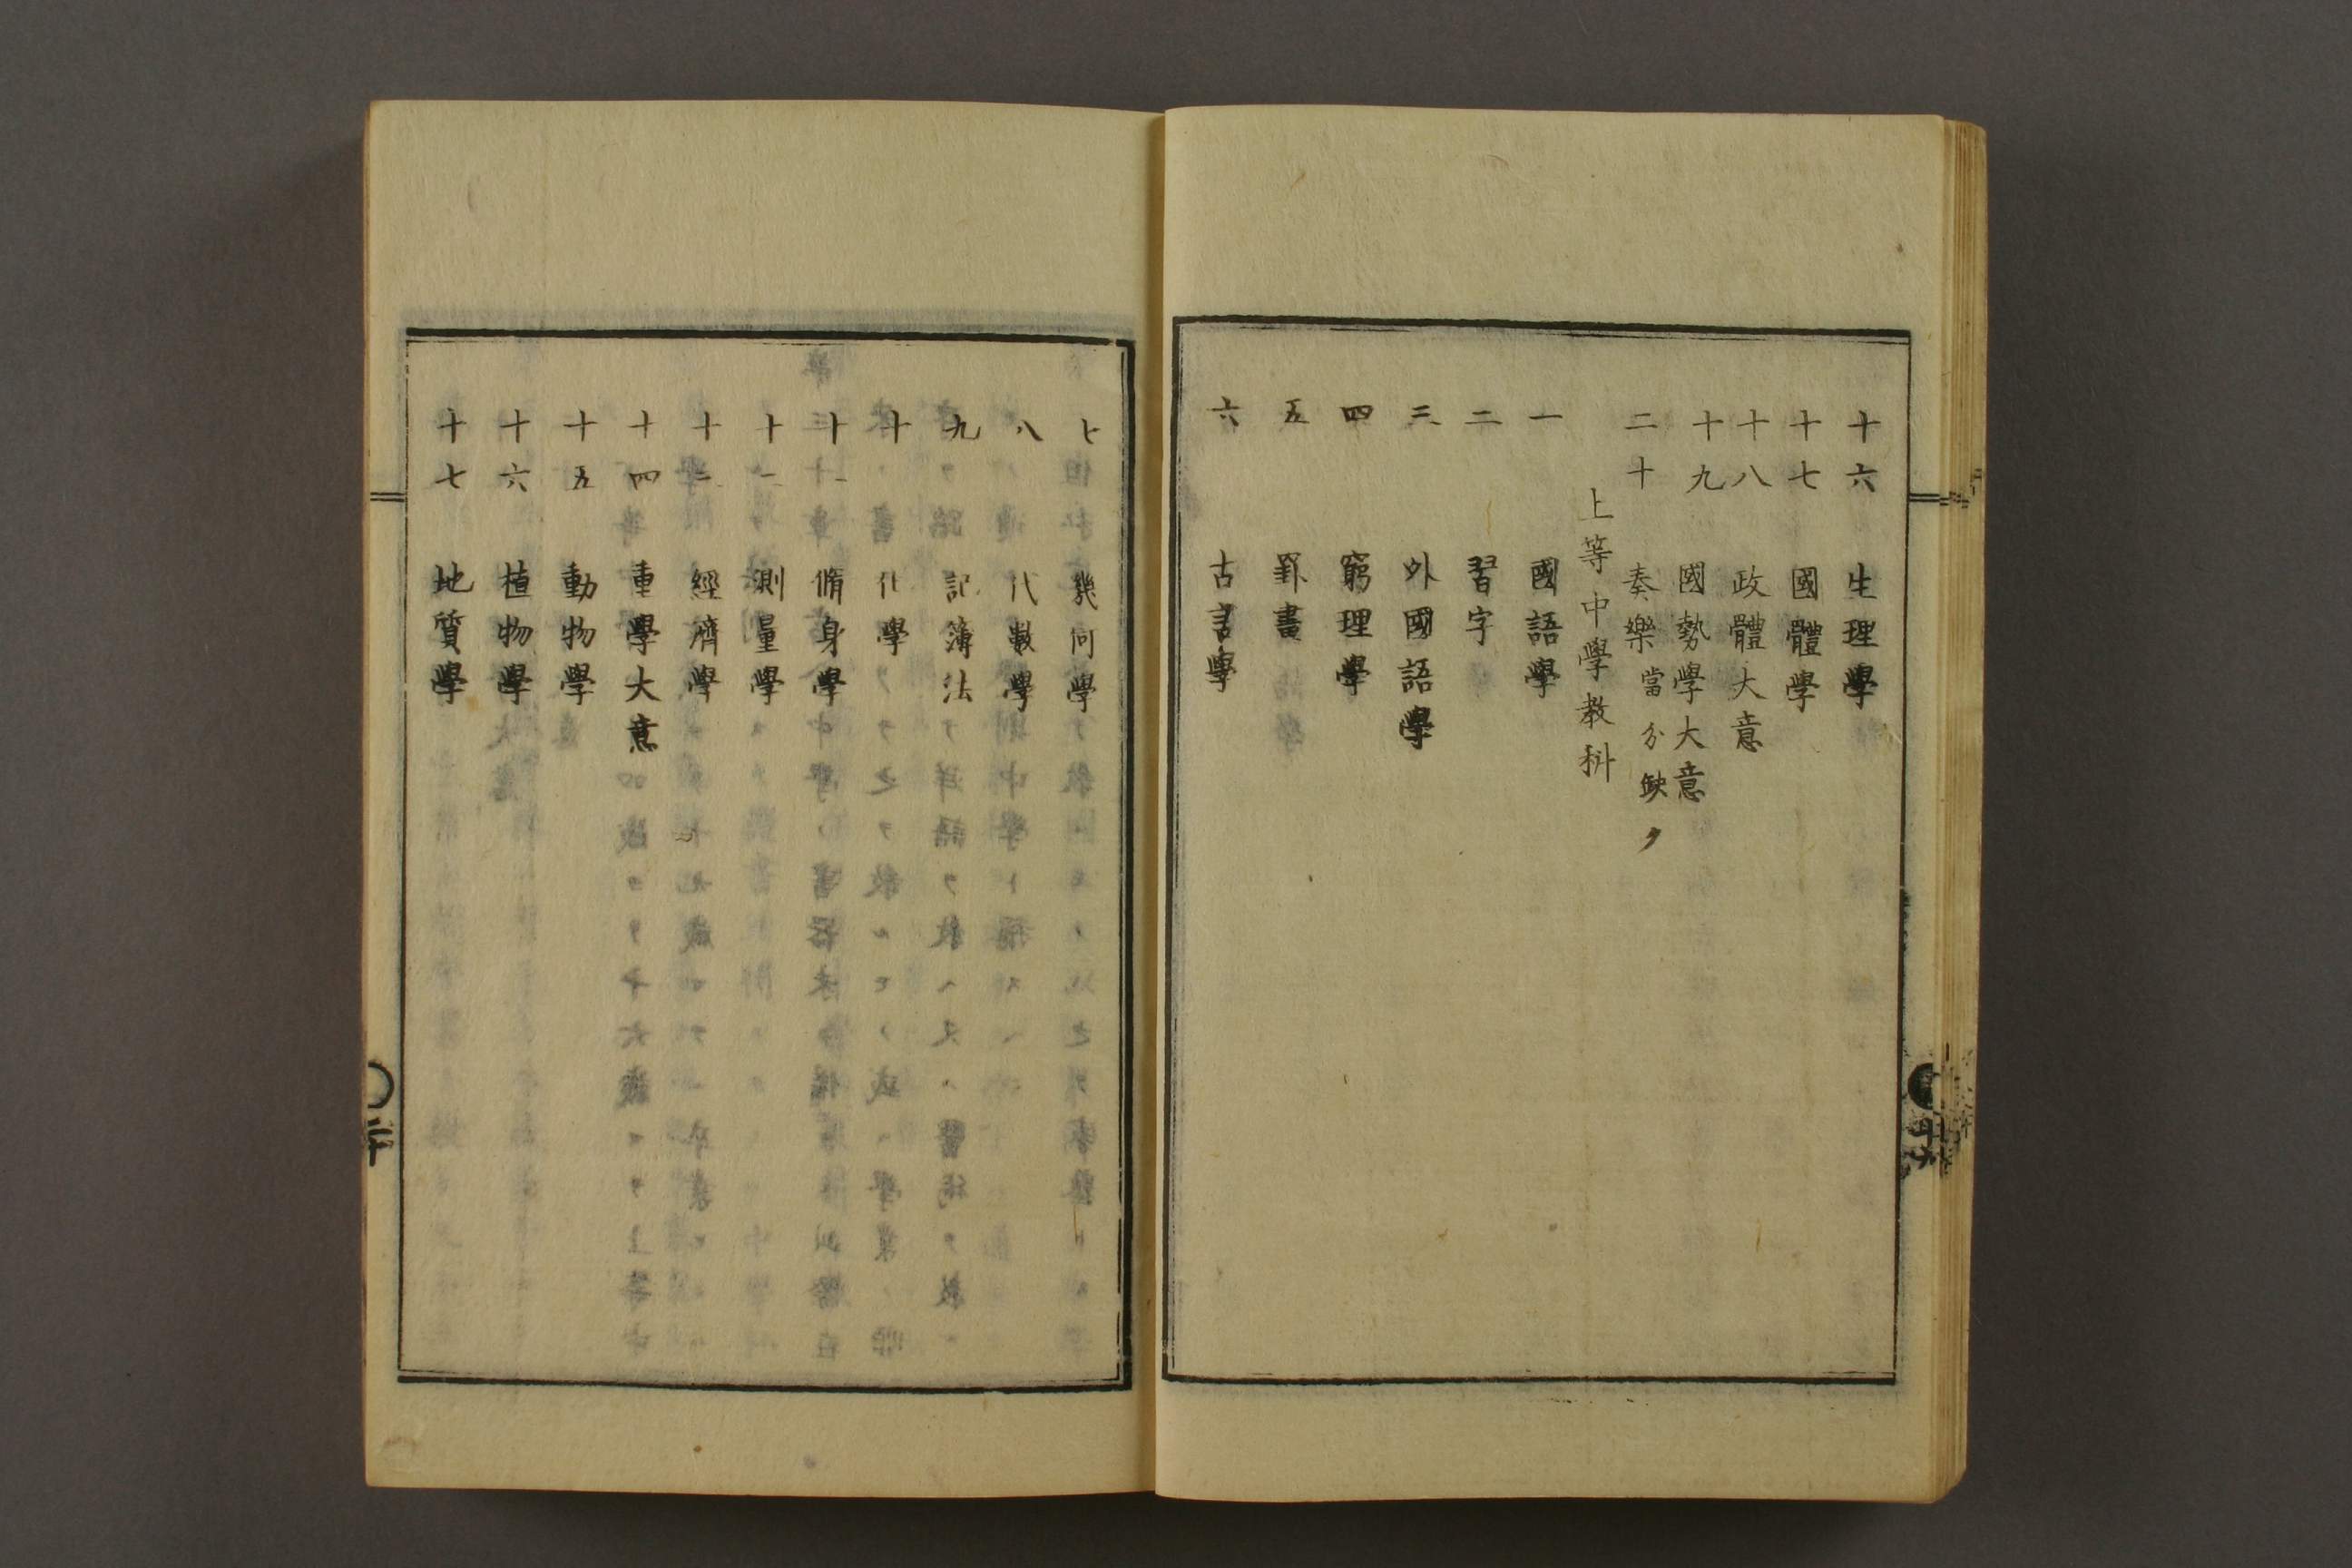 十六 生理學
十七 國體學
十八 政體大意
十九 國勢學大意
二十 奏樂 當分缺ク
上等中學教科
一 國語學
二 習字
三 外國語學
四 窮理學
五 罫畫
六 古言學
七 幾何學
八 代數學
九 記簿法
十 化學
十一 脩身學
十二 測量學
十三 經濟學
十四 重學大意
十五 動物學
十六 植物學
十七 地質學